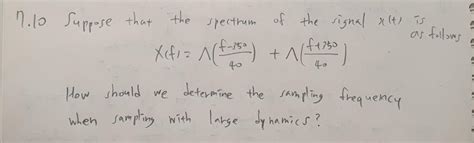 7.10 Suppose that the spectrum of the signal x(t) is as follows
X(f) = Λ((f-350)/40) + Λ((f+350)/40)
How should we determine the sampling frequency
when sampling with large dynamics?